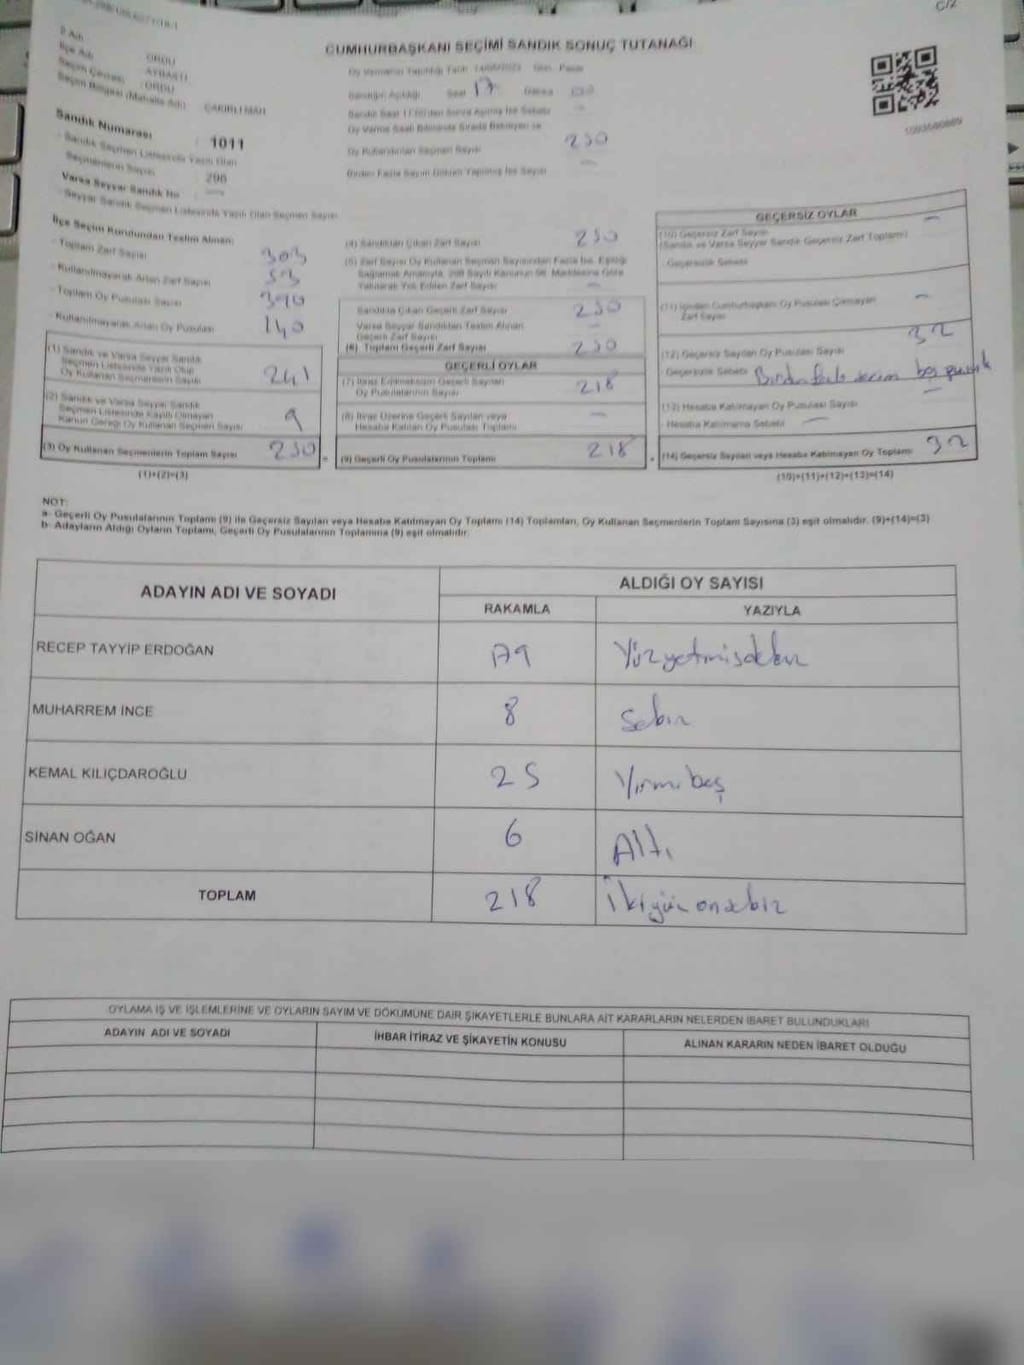 C/2
CUMHURBAŞKANI SEÇİMİ SANDIK SONUÇ TUTANAĞI
İl Adı ORDU
İlçe Adı AYBASTI
Seçim Çevresi ORDU
Seçim Bölgesi (Mahalle Adı) ÇAKIRLI MAH.
Sandık Numarası : 1011
- Sandık Seçmen Listesinde Yazılı Olan Seçmenlerin Sayısı 298
Varsa Seyyar Sandık No
- Seyyar Sandık Seçmen Listesinde Yazılı Olan Seçmen Sayısı
Oy Vermenin Yapıldığı Tarih 14/05/2023 Gün Pazar
Sandığın Açıldığı Saat 17 Dakika
Sandık Saat 17.00'den Sonra Açılmış İse Sebebi
Oy Verme Saati Bitiminde Sırada Bekleyen ve
Oy Kullandırılan Seçmen Sayısı 250
Birden Fazla Sayım Döküm Yapılmış İse Sayısı
İlçe Seçim Kurulundan Teslim Alınan:
- Toplam Zarf Sayısı 303
- Kullanılmayarak Artan Zarf Sayısı 53
- Toplam Oy Pusulası Sayısı 390
- Kullanılmayarak Artan Oy Pusulası 140
(1) Sandık ve Varsa Seyyar Sandık
Seçmen Listesinde Yazılı Olup
Oy Kullanan Seçmenlerin Sayısı 241
(2) Sandık ve Varsa Seyyar Sandık
Seçmen Listesinde Kayıtlı Olmayan
Kanun Gereği Oy Kullanan Seçmen Sayısı 9
(3) Oy Kullanan Seçmenlerin Toplam Sayısı 250
(1)+(2)=(3)
(4) Sandıktan Çıkan Zarf Sayısı 250
(5) Zarf Sayısı Oy Kullanan Seçmen Sayısından Fazla İse, Eşitliği
Sağlamak Amacıyla, 298 Sayılı Kanunun 98. Maddesine Göre
Yakılarak Yok Edilen Zarf Sayısı
Sandıkta Çıkan Geçerli Zarf Sayısı 250
Varsa Seyyar Sandıktan Teslim Alınan
Geçerli Zarf Sayısı
(6) Toplam Geçerli Zarf Sayısı 250
GEÇERLİ OYLAR
(7) İtiraz Edilmeksizin Geçerli Sayılan
Oy Pusulalarının Sayısı 218
(8) İtiraz Üzerine Geçerli Sayılan veya
Hesaba Katılan Oy Pusulası Toplamı
(9) Geçerli Oy Pusulalarının Toplamı 218
GEÇERSİZ OYLAR
(10) Geçersiz Zarf Sayısı
(Sandık ve Varsa Seyyar Sandık Geçersiz Zarf Toplamı)
- Geçersizlik Sebebi
(11) İçinden Cumhurbaşkanı Oy Pusulası Çıkmayan
Zarf Sayısı
(12) Geçersiz Sayılan Oy Pusulası Sayısı 32
Geçersizlik Sebebi Birden fazla seçim boş pusula
(13) Hesaba Katılmayan Oy Pusulası Sayısı
- Hesaba Katılmama Sebebi
(14) Geçersiz Sayılan veya Hesaba Katılmayan Oy Toplamı 32
(10)+(11)+(12)+(13)=(14)
NOT:
a- Geçerli Oy Pusulalarının Toplamı (9) ile Geçersiz Sayılan veya Hesaba Katılmayan Oy Toplamı (14) Toplamları, Oy Kullanan Seçmenlerin Toplam Sayısına (3) eşit olmalıdır. (9)+(14)=(3)
b- Adayların Aldığı Oyların Toplamı, Geçerli Oy Pusulalarının Toplamına (9) eşit olmalıdır.
ADAYIN ADI VE SOYADI ALDIĞI OY SAYISI
RAKAMLA YAZIYLA
RECEP TAYYİP ERDOĞAN 179 Yüzyetmişdokuz
MUHARREM İNCE 8 Sekiz
KEMAL KILIÇDAROĞLU 25 Yirmibeş
SİNAN OĞAN 6 Altı
TOPLAM 218 İkiyüzonsekiz
OYLAMA İŞ VE İŞLEMLERİNE VE OYLARIN SAYIM VE DÖKÜMÜNE DAİR ŞİKAYETLERLE BUNLARA AİT KARARLARIN NELERDEN İBARET BULUNDUKLARI
ADAYIN ADI VE SOYADI İHBAR İTİRAZ VE ŞİKAYETİN KONUSU ALINAN KARARIN NEDEN İBARET OLDUĞU